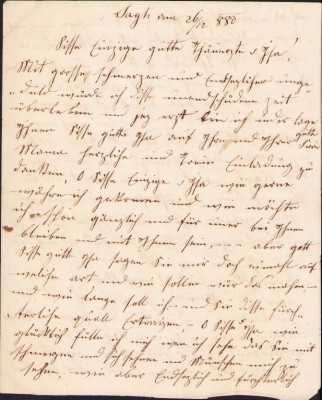 Sagh am 26/12 880
Sisse Einzige gutte Theuerste Isa!
Mit grossen schmerzen und Endsezlicher unge
duld wurde ich disse unendschidene zeit
überleben und jez erzt bin ich in der lage
Ihnen Sisse gutte Isa auf Ihre und Ihrer gutten
Mama herzliche und Einladung zu
danken, O Sisse Einzige Isa wie gerne
wäre ich gekomen und wie möchte
ich schon gänzlich und für imer bei Ihnen
bleiben und mit Ihnen sein, aber gott
Sisse gutte Isa sagen Sie mir doch einmahl auf
welche art und wie sollen wir das machen
und wie lange soll ich und Sie disse fürch
terliche quall Ertragen - O Sisse Isa wie
glücklich fülle ich mich wen ich sehe das Sie mit
schmerzen und sich sehnen und Wünschen mich zu
sehen, wie aber Endsezlich und fürchterlich